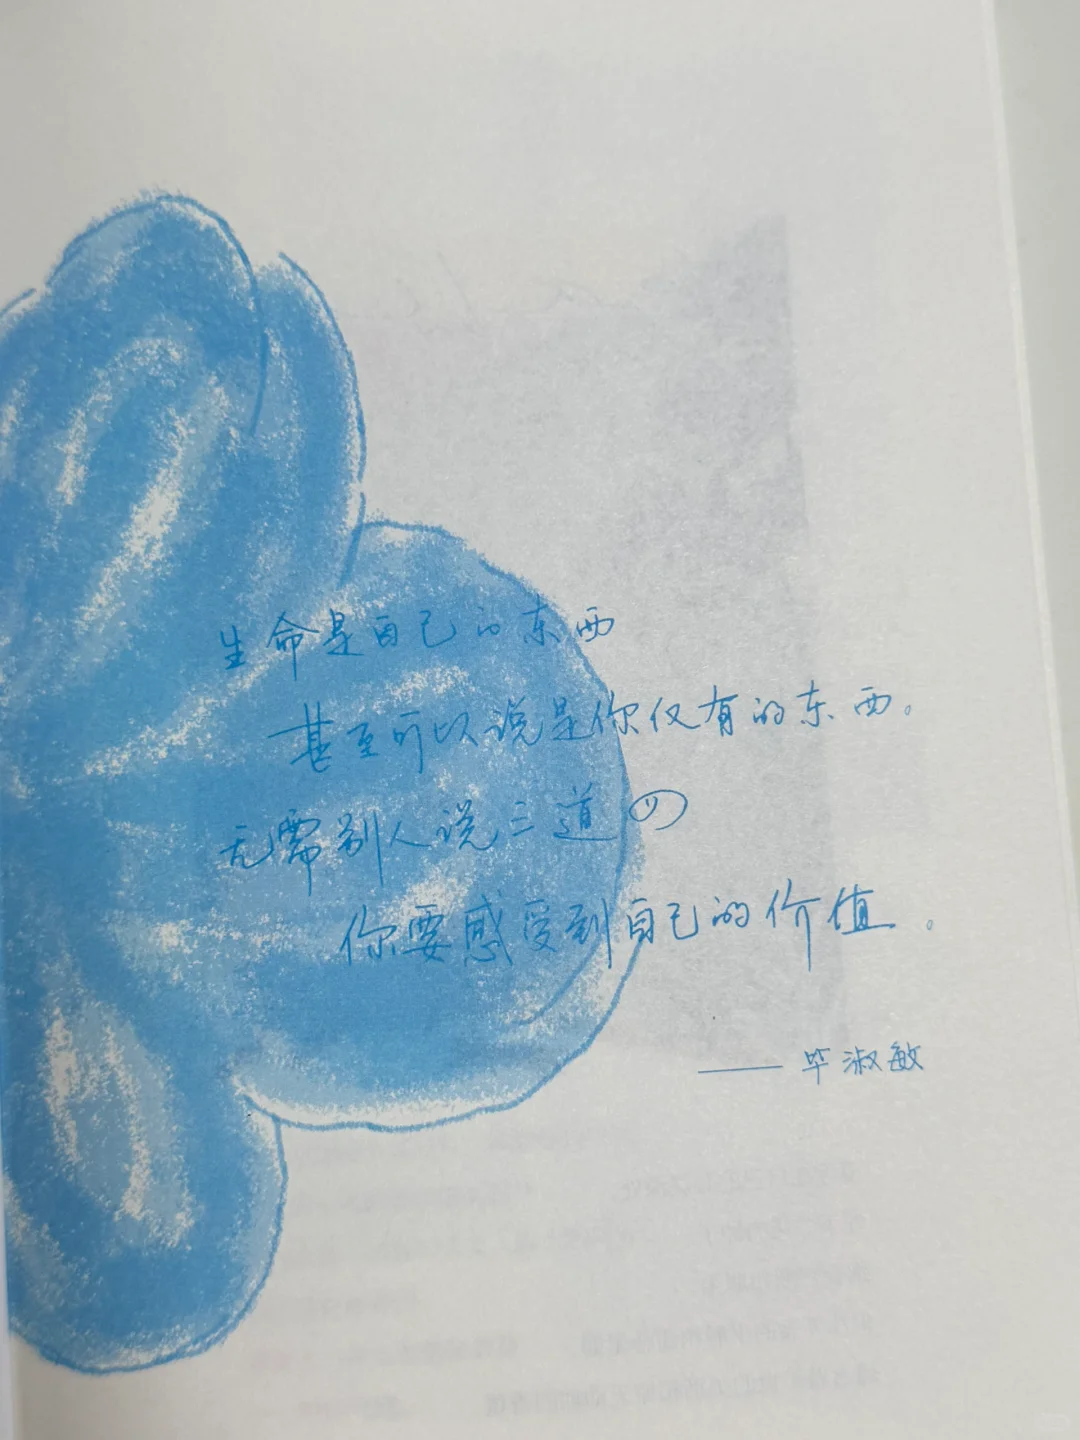 生命是自己的东西
甚至可以说是你仅有的东西。
无需别人说三道四
你要感受到自己的价值。
——毕淑敏